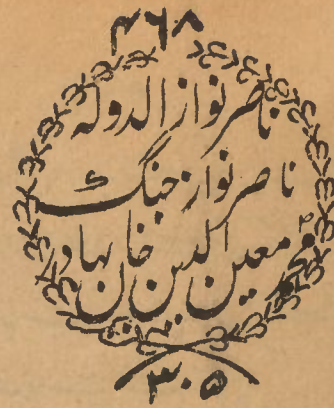 ۴۶۸
ناصر نواز الدولہ
ناصر نواز جنگ
محمد معین الدین خان بہادر
۳۰۵